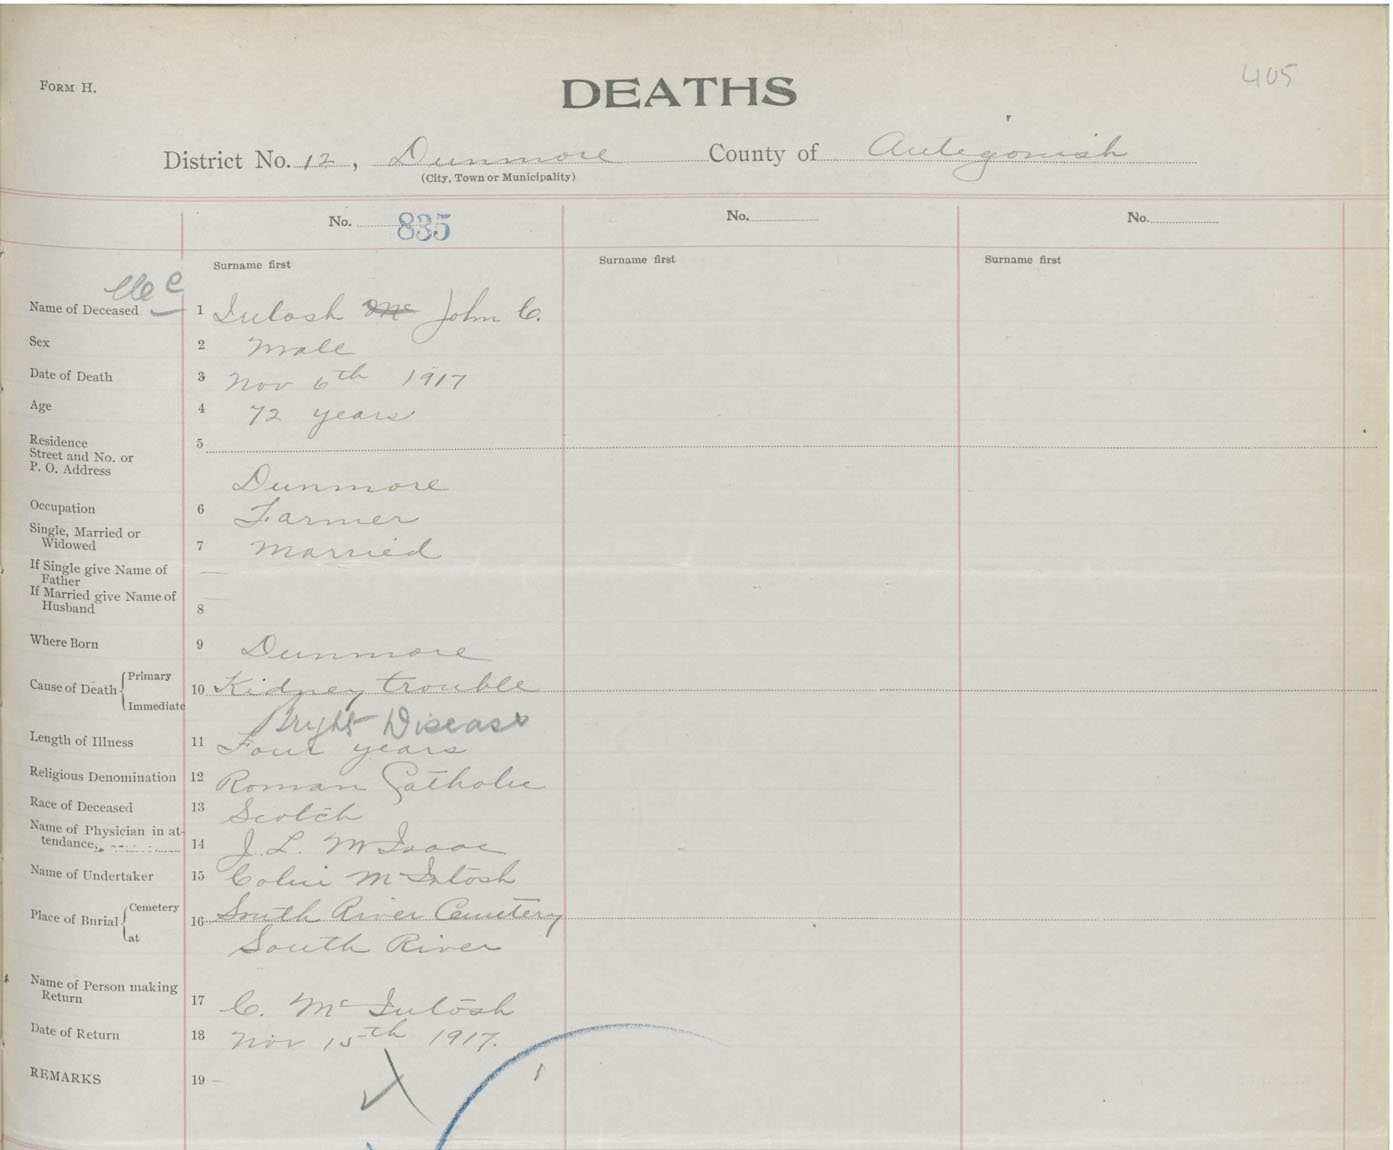 FORM H.
DEATHS
405
District No. 12, Dunmore County of Antigonish
(City, Town or Municipality)
No. 835 No. No.
Surname first Surname first Surname first
Mc
Name of Deceased 1 Intosh Mc John C.
Sex 2 Male
Date of Death 3 Nov 6th 1917
Age 4 72 years
Residence 5
Street and No. or
P. O. Address
Dunmore
Occupation 6 Farmer
Single, Married or
Widowed 7 Married
If Single give Name of
Father
If Married give Name of
Husband 8
Where Born 9 Dunmore
Cause of Death { Primary
10 Kidney trouble
Immediate
Bright Diseas
Length of Illness 11 Four years
Religious Denomination 12 Roman Catholic
Race of Deceased 13 Scotch
Name of Physician in at-
tendance, 14 J. L. McIsaac
Name of Undertaker 15 Colin McIntosh
Place of Burial { Cemetery
16 South River Cemetery
at South River
Name of Person making
Return 17 C. McIntosh
Date of Return 18 Nov 15th 1917.
REMARKS 19 –